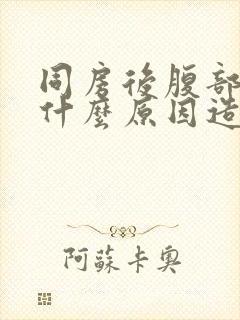 同房後腹部
什麼原因造
阿蘇卡奧